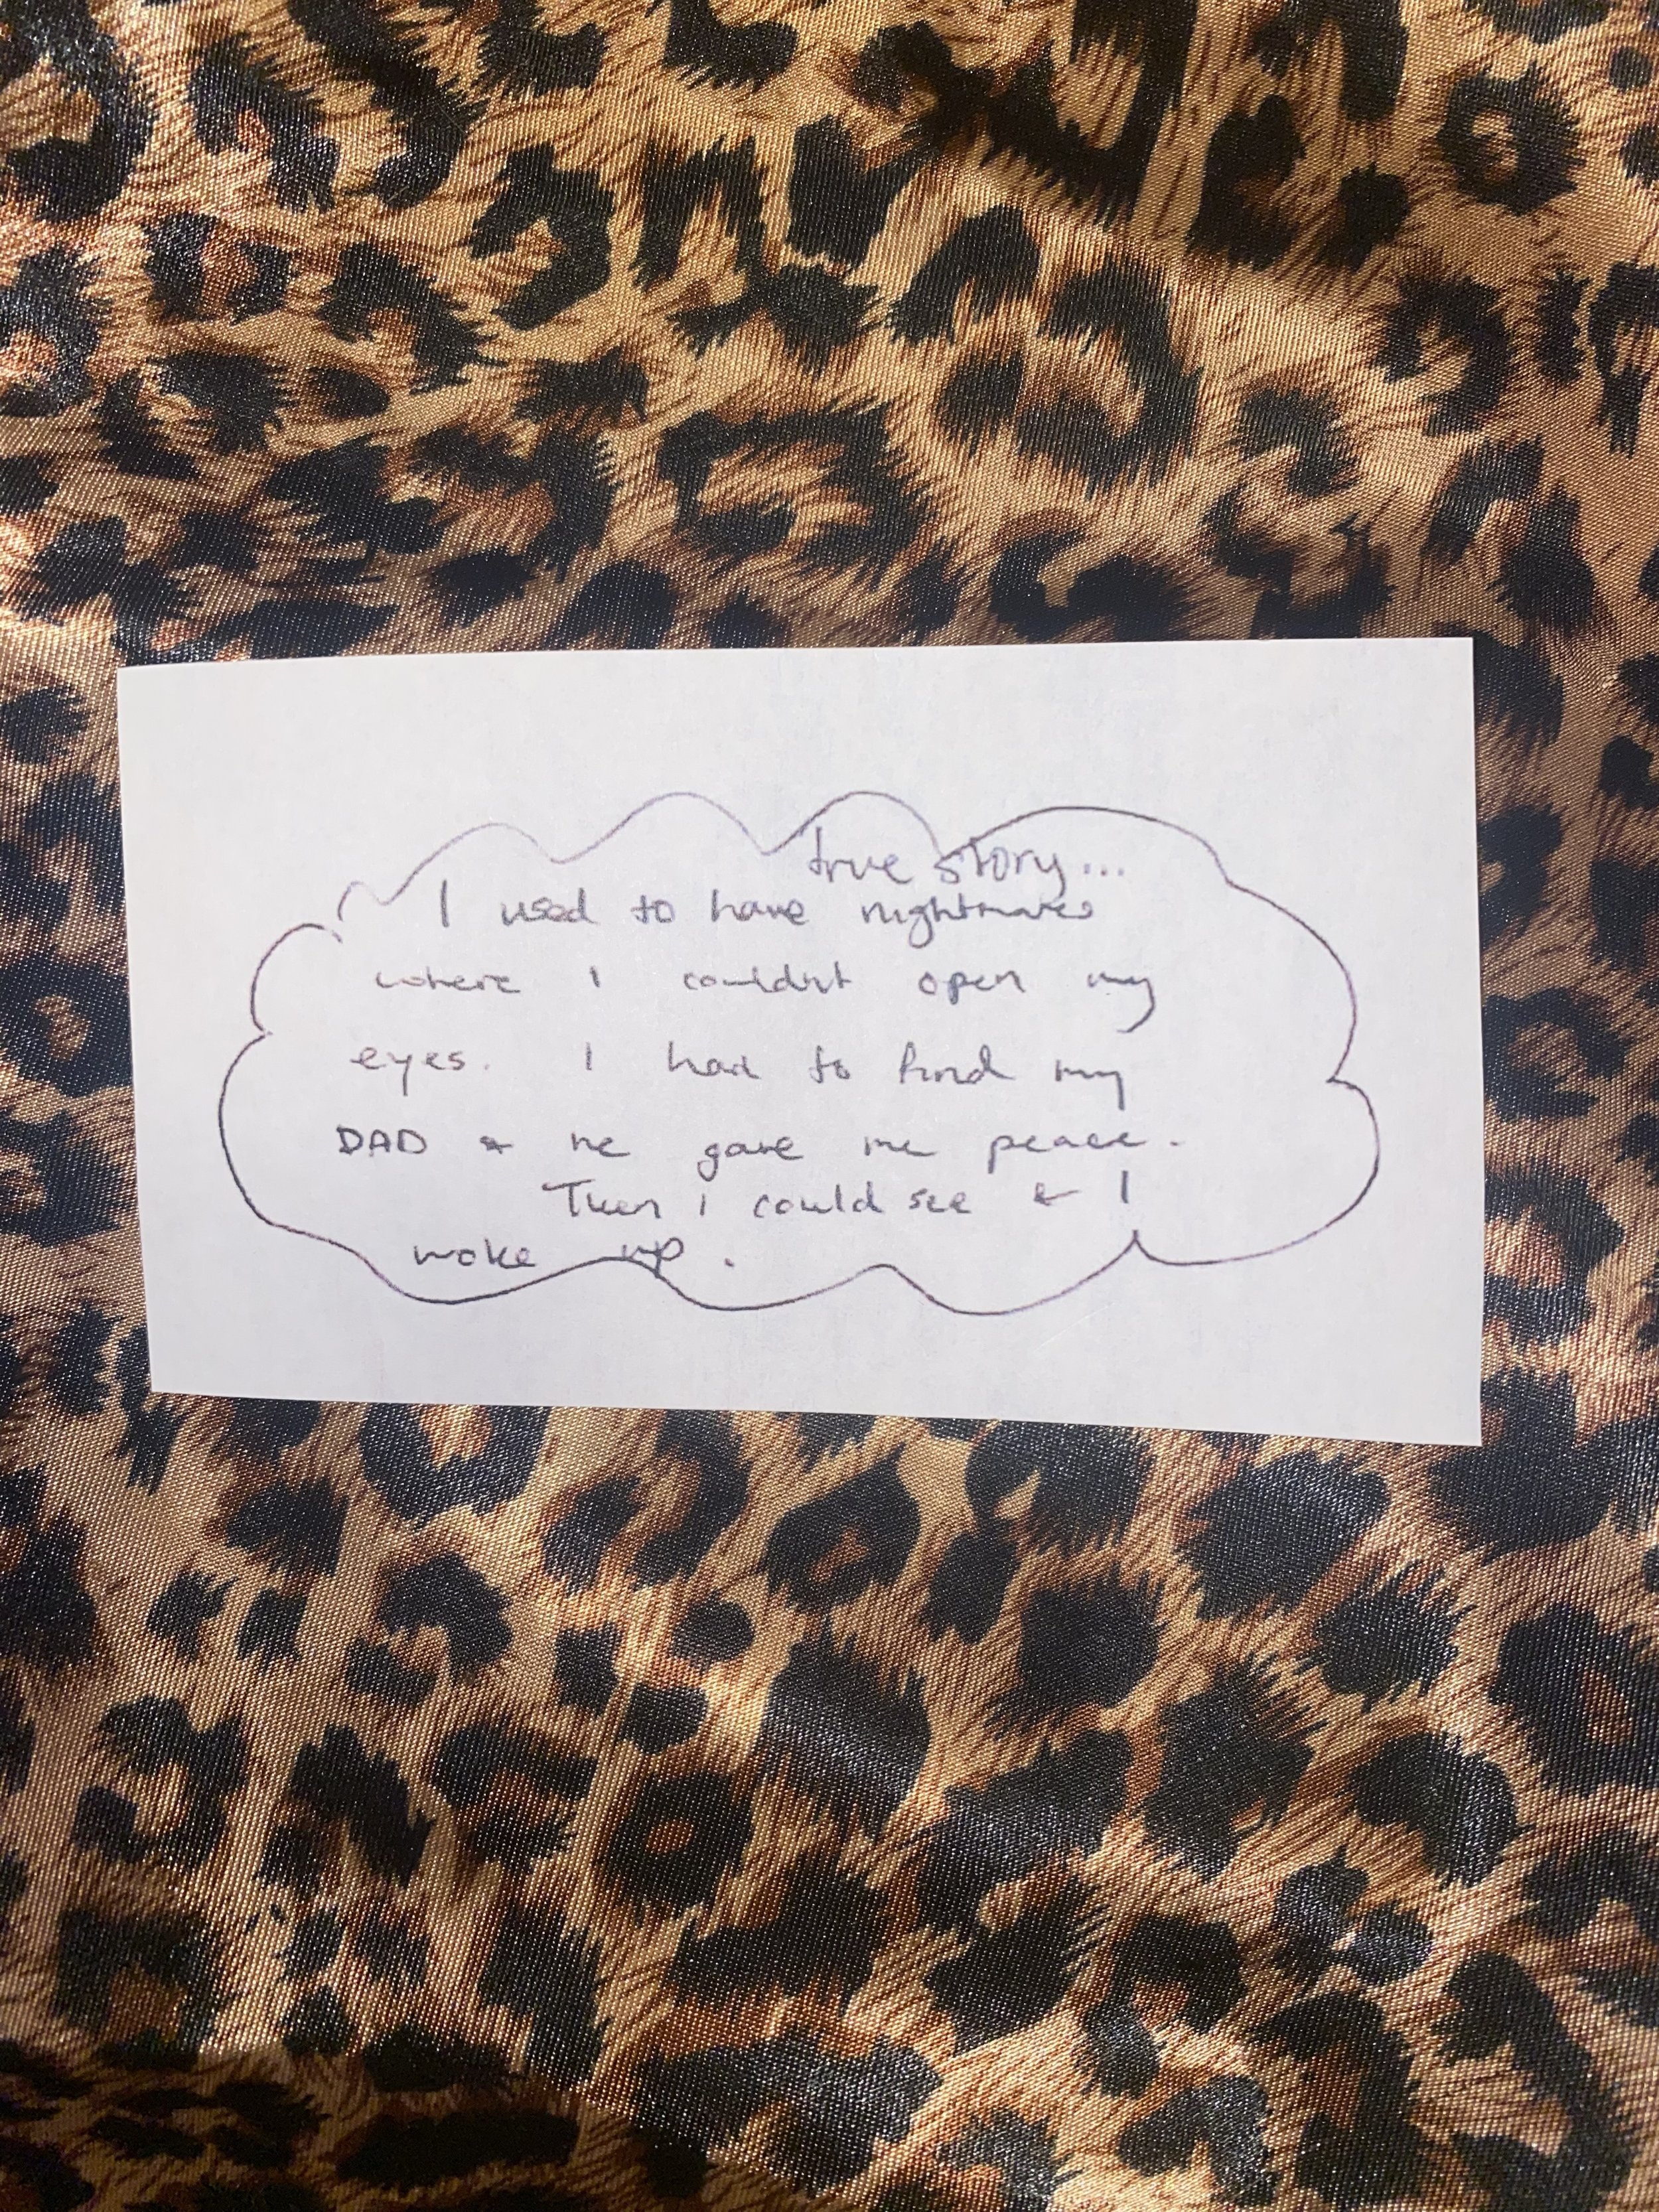 true story...
I used to have nightmares
where i couldn't open my
eyes. I had to find my
DAD & he gave me peace.
Then i could see & I
woke up.